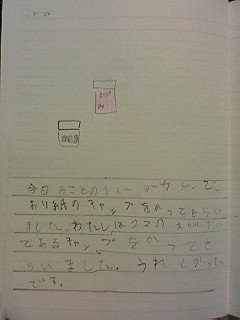 今日 みことのイトーヨーカドーで、
おり紙のキャップをかってもらい
ました。わたしはクマの
てあるキャップをかっても
らいました。うれしかった
です。